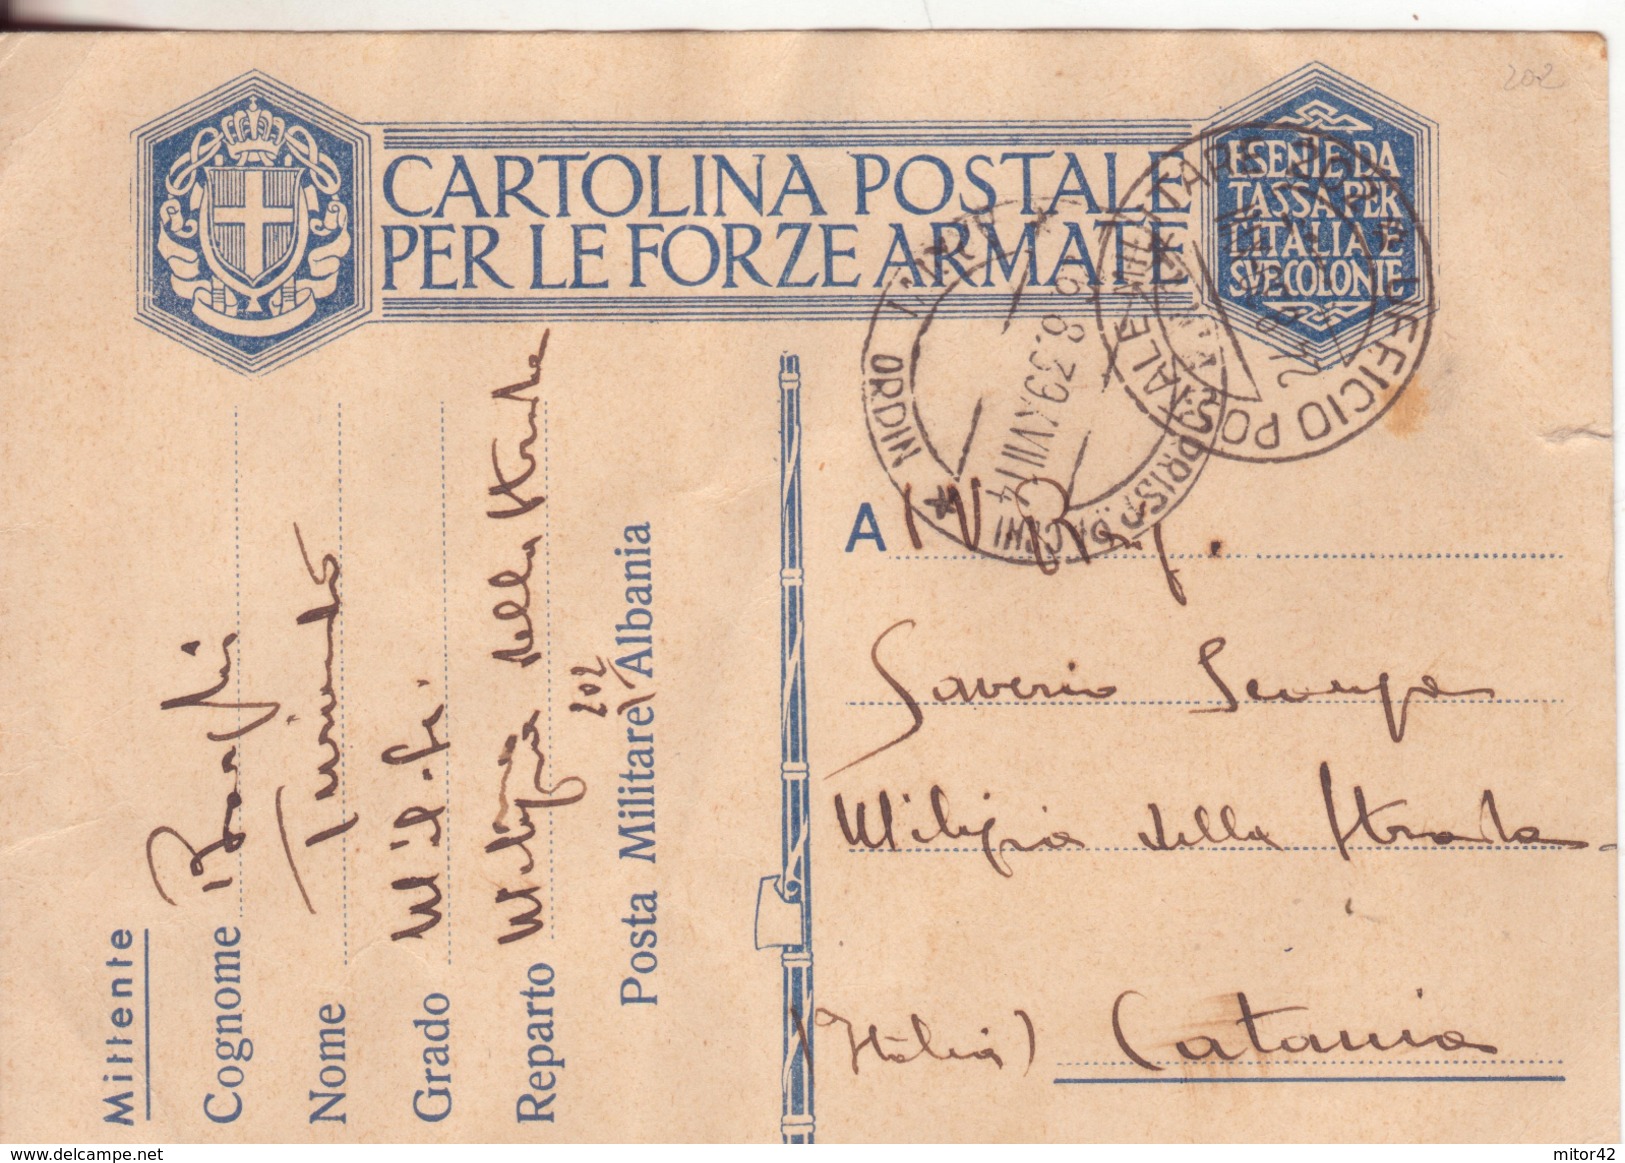 202
CARTOLINA POSTALE
PER LE FORZE ARMATE
ESENTE DA
TASSA PER
L'ITALIA E
SUE COLONIE
UFFICIO POSTALE MILITARE
8.39.XVII 14
ORDIN
Mittente
Cognome
Nome
Grado Mil.
Reparto Milizia della Strada
Posta Militare 202 Albania
A
Saverio
Milizia della Strada
(Italia) Catania
delcampe.net
mitor42